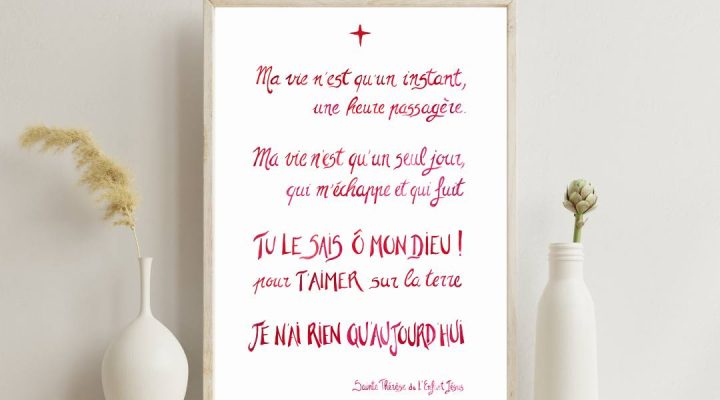 Ma vie n'est qu'un instant,
une heure passagère.
Ma vie n'est qu'un seul jour,
qui m'échappe et qui fuit
TU LE SAIS Ô MON DIEU !
pour T'AIMER sur la terre
JE N'AI RIEN QU'AUJOURD'HUI
Sainte Thérèse de l'Enfant Jésus